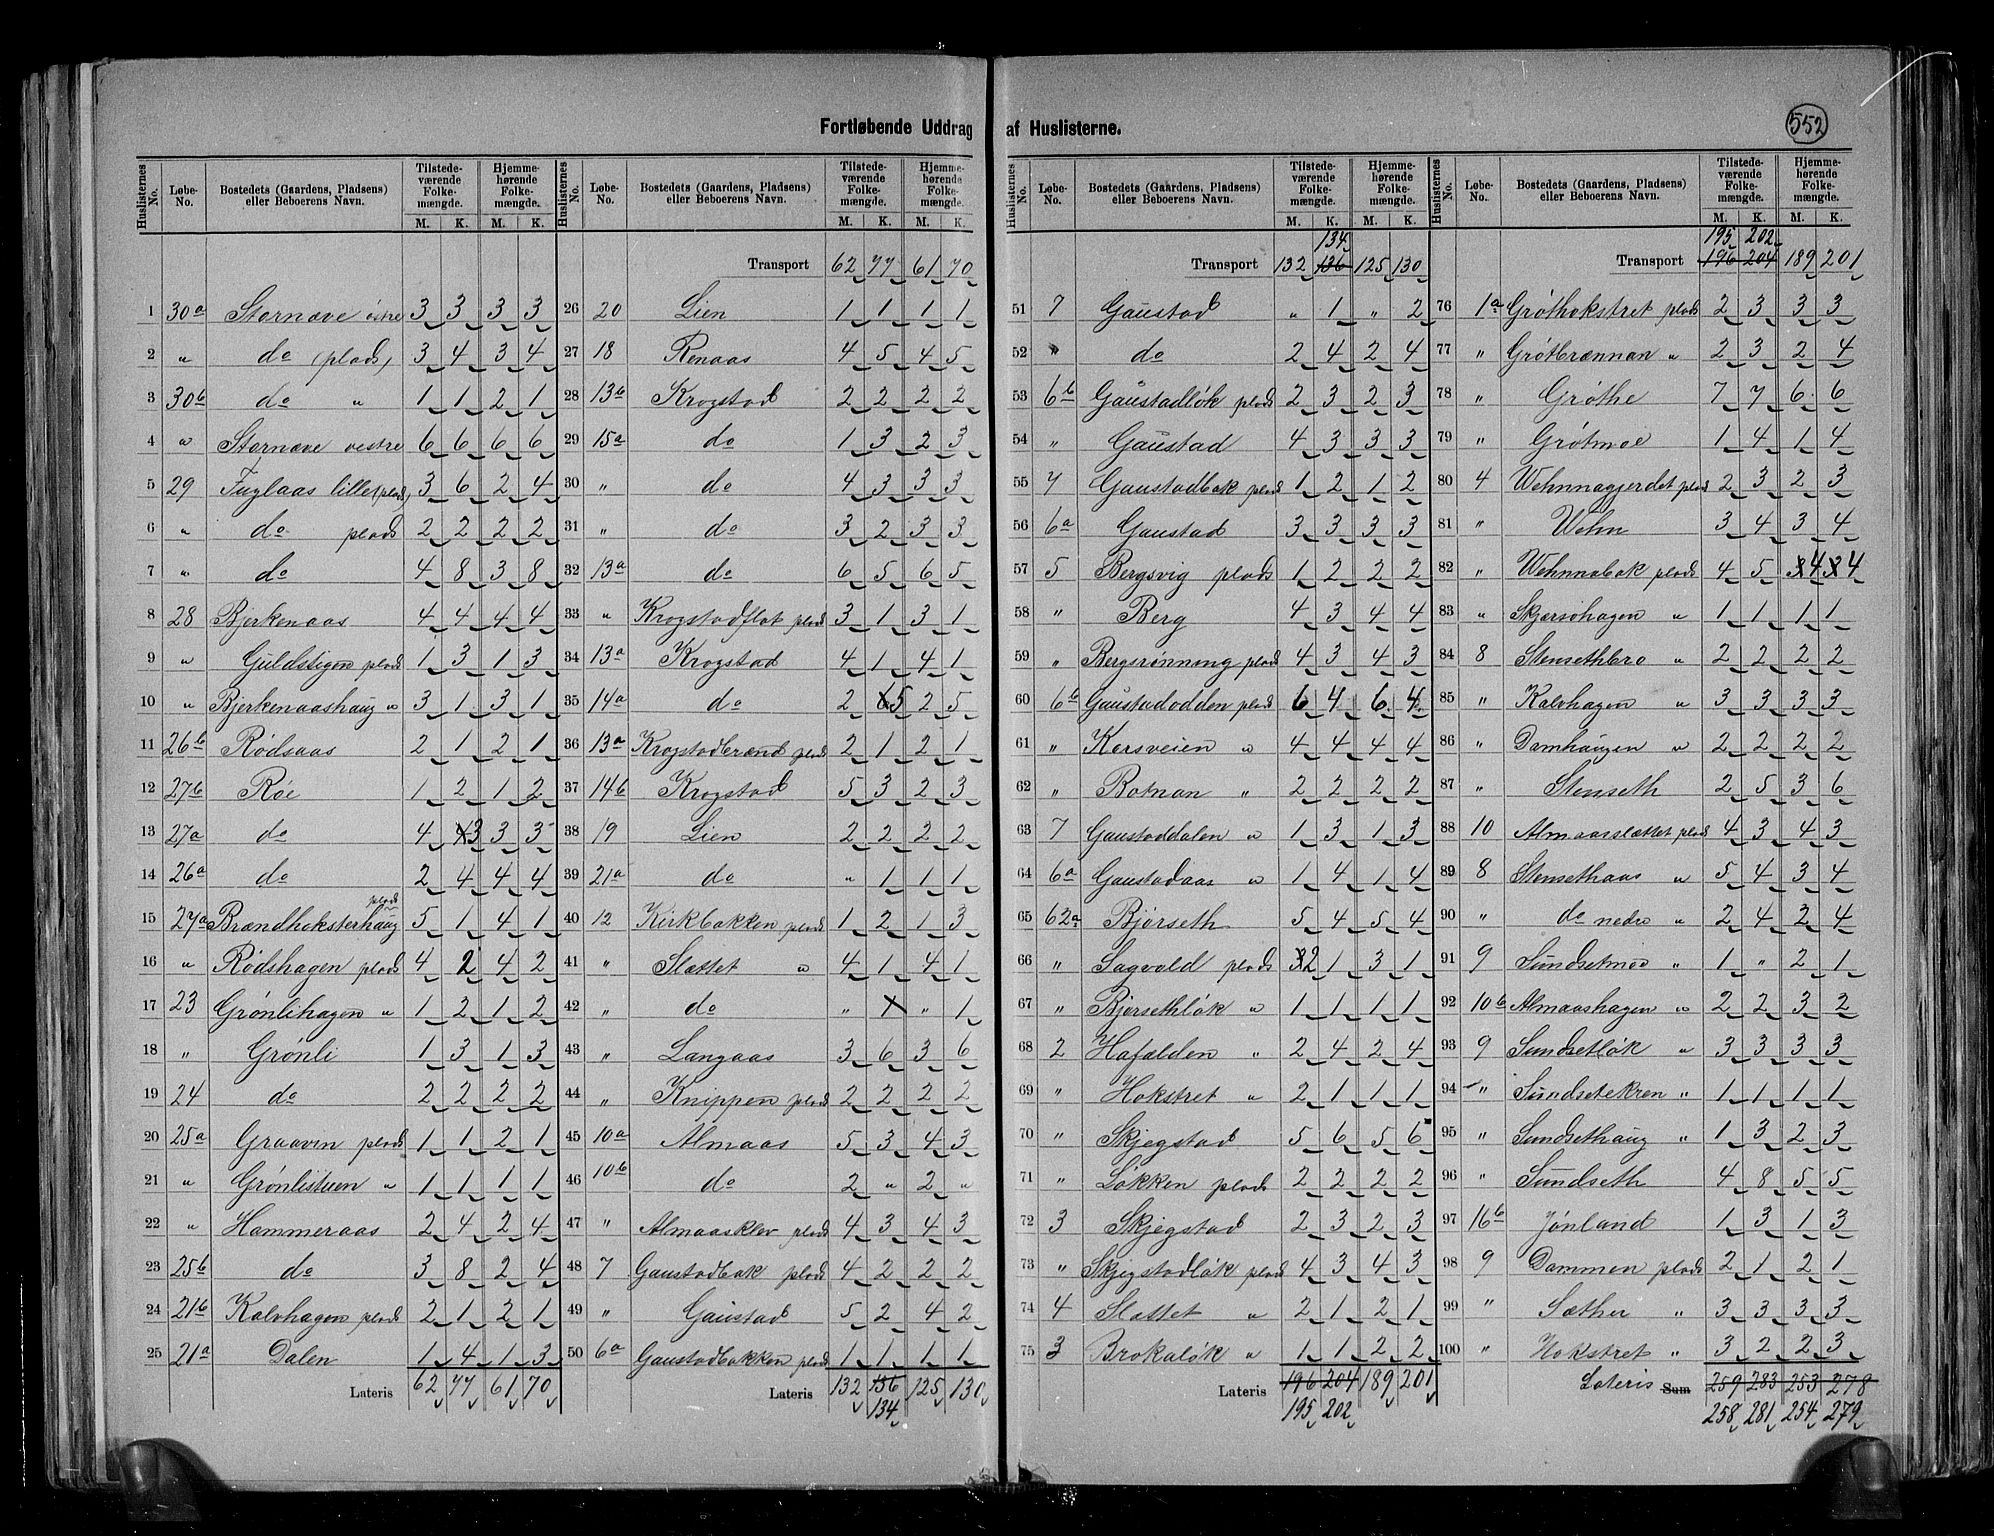 Fortløbende Uddrag af Huslisterne.
552
Huslisternes No. | Løbe-No. | Bostedets (Gaardens, Pladsens) eller Beboerens Navn. | Tilstedeværende Folkemængde. M. K. | Hjemmehørende Folkemængde. M. K.
1 30a Stornæve østre 3 3 3 3
2 " do (plads) 3 4 3 4
3 30b do " 1 1 2 1
4 " Stornæve vestre 6 6 6 6
5 29 Fuglaas lille (plads) 3 6 2 4
6 " do plads 2 2 2 2
7 " do 4 8 3 8
8 28 Bjerkenaas 4 4 4 4
9 " Guldstigen plads 1 3 1 3
10 " Bjerkenaashaug " 3 1 3 1
11 26b Rødsaas 2 1 2 1
12 27b Røe 1 2 1 2
13 27a do 4 3 3 3
14 26a do 2 4 4 4
15 27a Brændhoksterhaug plads 5 1 4 1
16 " Rødshagen plads 4 2 4 2
17 23 Grønlihagen " 1 2 1 2
18 " Grønli 1 3 1 3
19 24 do 2 2 2 2
20 25a Graaven plads 1 1 2 1
21 " Grønlistuen " 1 1 1 1
22 " Hammeraas 2 4 2 4
23 25b do 3 8 2 4
24 21b Kalvhagen plads 2 1 2 1
25 21a Dalen 1 4 1 3
Lateris 62 77 61 70
Huslisternes No. | Løbe-No. | Bostedets (Gaardens, Pladsens) eller Beboerens Navn. | Tilstedeværende Folkemængde. M. K. | Hjemmehørende Folkemængde. M. K.
Transport 62 77 61 70
26 20 Lien 1 1 1 1
27 18 Renaas 4 5 4 5
28 13b Krogstad 2 2 2 2
29 15a do 1 3 2 3
30 " do 4 3 3 3
31 " do 3 2 3 3
32 13a do 6 5 6 5
33 " Krogstadflat plads 3 1 3 1
34 13a Krogstad 4 1 4 1
35 14a do 2 6 5 2 5
36 13a Krogstadbrænd plads 2 1 2 1
37 14b Krogstad 5 3 2 3
38 19 Lien 2 2 2 2
39 21a do " 1 1 1
40 12 Kirkbakken plads 1 2 1 3
41 " Slættet " 4 1 4 1
42 " do " " 1
43 " Langaas 3 6 3 6
44 " Knippen plads 2 2 2 2
45 10a Almaas 5 3 4 3
46 10b do 2 " 2 "
47 " Almaasklev plads 4 3 4 3
48 7 Gaustadbak plads 4 2 2 2
49 " Gaustad 5 2 4 2
50 6a Gaustadbakken plads 1 1 1 1
Lateris 132 136 125 130
134
Huslisternes No. | Løbe-No. | Bostedets (Gaardens, Pladsens) eller Beboerens Navn. | Tilstedeværende Folkemængde. M. K. | Hjemmehørende Folkemængde. M. K.
134
Transport 132 136 125 130
51 7 Gaustad " 1 " 2
52 " do 2 4 2 4
53 6b Gaustadløk plads 2 3 2 3
54 " Gaustad 4 3 3 3
55 7 Gaustadbak plads 1 2 1 2
56 6a Gaustad 3 3 3 3
57 5 Bergsvig plads 1 2 2 2
58 " Berg 4 3 4 4
59 " Bergsrønning plads 4 3 4 3
60 6b Gaustadodden plads 6 4 6 4
61 " Korsveien " 4 4 4 4
62 " Botnan " 2 2 2 2
63 7 Gaustaddalen " 1 3 1 3
64 6a Gaustadaas " 1 4 1 4
65 62a Bjørseth 5 4 5 4
66 " Sagvold plads 3 2 1 3 1
67 " Bjørsethløk " 1 1 1 1
68 2 Hafælden " 2 4 2 4
69 " Hokstret " 2 1 1 1
70 " Skjegstad 5 6 5 6
71 " Løkken plads 2 2 2 2
72 3 Skjegstad 2 3 2 3
73 " Skjegstadløk plads 4 3 4 3
74 4 Slættet " 2 1 2 1
75 3 Brokaløk " 1 1 2 2
Lateris 196 204 189 201
195 202
Huslisternes No. | Løbe-No. | Bostedets (Gaardens, Pladsens) eller Beboerens Navn. | Tilstedeværende Folkemængde. M. K. | Hjemmehørende Folkemængde. M. K.
195 202
Transport 196 204 189 201
76 1a Grøthokstret plads 2 3 3 3
77 " Grøtbrænnan " 2 3 2 4
78 " Grøthe 7 7 6 6
79 " Grøtmoe 1 4 1 4
80 4 Wehnnagjerdet plads 2 3 2 3
81 " Wehn 3 4 3 4
82 " Wehnnabak plads 4 5 4 4
83 " Skjørsøhagen " 1 1 1 1
84 8 Stensethbro " 2 2 2 2
85 " Kalvhagen " 3 3 3 3
86 " Damhaugen " 2 2 2 2
87 " Stenseth 2 5 3 6
88 10 Almaasslættet plads 4 3 4 3
89 8 Stensethaas " 5 4 3 4
90 " do nedre " 2 4 2 4
91 9 Sundsetmo " 1 " 2 1
92 10b Almaashagen " 2 2 3 2
93 9 Sundsetløk " 3 3 3 3
94 " Sundsetekren " 1 1 1 1
95 " Sundsethaug " 1 3 2 3
96 " Sundseth 4 8 5 5
97 16b Jønland 1 3 1 3
98 9 Dammen plads 2 1 2 1
99 " Sæther " 3 3 3 3
100 " Hokstret " 3 2 2 3
Lateris Sum 259 283 253 278
258 281 254 279